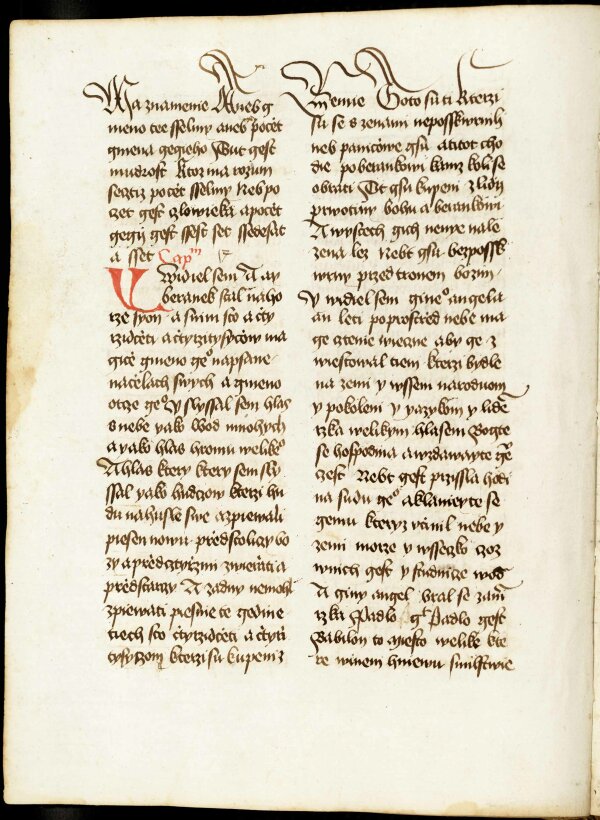 Ma znamenie Aneb g
meno tee sselmy aneb pocżet
gmena gegieho Tut gest
mudrost Ktoz ma rozum
secżtiz pocżet sselmy Neb po
czet gest cżlowieka a pocżet
gegij gest ssest set ssedesat
a sset Cap^m
Uidiel sem A ay
beranek stal na ho
rze syon a s nim sto a cżty
rzidcżeti a cżtyrzi tysyczow ma
gicż gmeno ge° napsane
na cżelach swych a gmeno
otcze ge° Y slyssal sem hlas
s nebe yako wod mnohych
a yako hlas hromu welike°
A hlas ktery ktery sem sly
ssal yako hudczow kterzi hu
du na husle swe a zpiewali
piesen nowu przed stoliczy bo
zy a przed cżtyrzmi zwierzati a
przed starzy A zadny nemohl
zpiewati piesnie te gedine
tiech sto cżtyrzidcżeti a cżtyrzi
tysyczow kterzi su kupeni z
zemie Toto su ti kterzi
su se s zenami neposskwrnili
neb paniczowe gsu a ti tot cho
die po berankowi kamz koli se
obrati Tit gsu kupeni z lidij
prwotiny bohu a berankowi
A w ustech gich nenie nale
zena lez Nebt gsu bezpossk
wrny przed tronem bozim
Y widiel sem gine° angela
an leti poprostred nebe ma
ge cżtenie wiecżne aby ge z
wiestowal tiem kterzi bydle
na zemi y wssem naroduom
y pokoleni y yazykom y lidem
rzka welikym hlasem Bogte
se hospodina a wzdawayte ge°
cżest Nebt gest przissla hodi
na sudu ge° a klaniey te se
gemu kteryz ucżinil nebe y
zemi morze y wsseczko czoz
w nich gest y studnicze wod
A giny angel bral se za nim
rzka Padlo gt Padlo gest
Babilon to miesto welike kte
re winem hniewu smilstwie